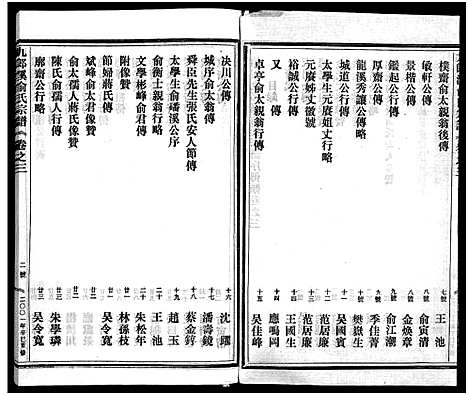 樸齋俞太親翁後傳 七號 王池
敏軒公傳 八號 俞寅清
景楷公傳 金煥章
鑑起公行略 俞江潮
厚齋公傳 季佳菁
龍溪秀讓公傳 樊嶽生
城道公行略 十一 吳國賓
太學生元賡姐丈行略 范居廉
元賡姊丈徵號 范居廉
裕誠公行略 王國生
又 十四 應鳴岡
卓亭俞太親翁行略 十五 吳佳峰
決川公傳 十六 沈曜
城序俞太翁傳 潘壽鏡
舜臣先生張氏安人節傳 蔡金鋅
太學生俞墦溪公序 十九 趙玉
俞衡士親翁行略 二十 王池
文學彬峰俞君傳 二十 朱松年
附像贊 廿一 林孫枝
節婦蔣氏傳
斌峰俞太君像贊
俞太孺人蔣氏像贊
陳氏俞孺人傳 廿三 朱學璘
廓齋公行略 廿三 吳令寬
九都溪俞氏宗譜 卷之三 二號